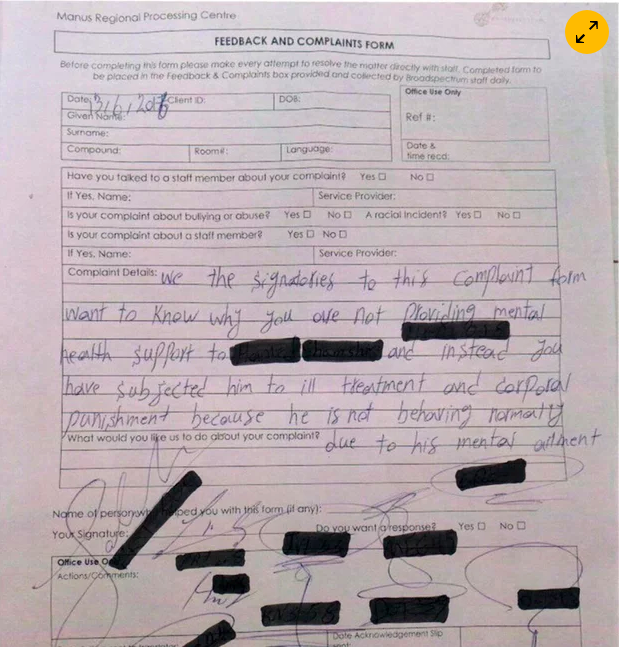 Manus Regional Processing Centre
FEEDBACK AND COMPLAINTS FORM
Before completing this form please make every attempt to resolve the matter directly with staff. Completed form to
be placed in the Feedback & Complaints box provided and collected by Broadspectrum staff daily.
Date: Client ID: DOB: Office Use Only
Given Name: Ref #:
Surname:
Compound: Room#: Language: Date &
time recd:
Have you talked to a staff member about your complaint? Yes ☐ No ☐
If Yes, Name: Service Provider:
Is your complaint about bullying or abuse? Yes ☐ No ☐ A racial incident? Yes ☐ No ☐
Is your complaint about a staff member? Yes ☐ No ☐
If Yes, Name: Service Provider:
Complaint Details: we the signatories to this complaint form
want to know why you are not providing mental
health support to and instead you
have subjected him to ill treatment and corporal
punishment because he is not behaving normally
What would you like us to do about your complaint? due to his mental ailment
Name of person who helped you with this form (if any):
Your Signature: Do you want a response? Yes ☐ No ☐
Office Use
Actions/Comments:
Date Acknowledgement Slip
sent: